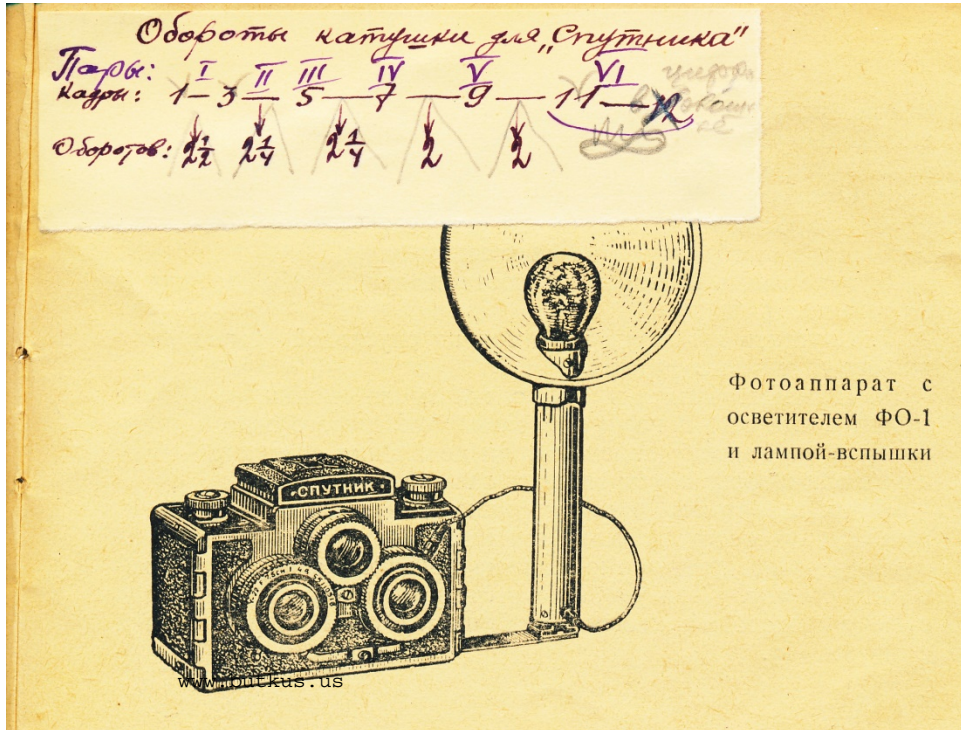 Обороты катушки для „Спутника"
Пары: I II III IV V VI
Кадры: 1 — 3 — 5 — 7 — 9 — 11 — 12
цифры
в
Оборотов: 2½ 2¼ 2¼ 2 2
СПУТНИК
Фотоаппарат с
осветителем ФО-1
и лампой-вспышки
www.butkus.us